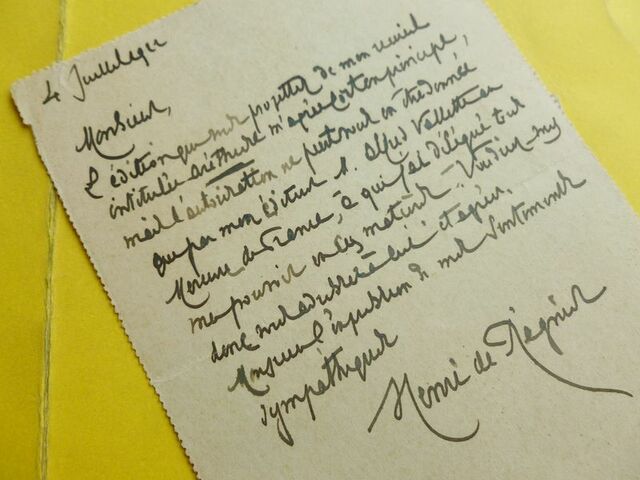 4 Juillet 1911
Monsieur,
L'édition que vous projettez de mon recueil
intitulée Aréthuse m'agrée fort en principe,
mais l'autorisation ne peut vous en être donnée
que par mon éditeur M. Alfred Vallette au
Mercure de France, à qui j'ai délégué tout
mes pouvoirs en ces matières. Veuillez
donc vous adresser à lui et agréer,
Monsieur l'expression de mes sentiments
sympathiques
Henri de Régnier